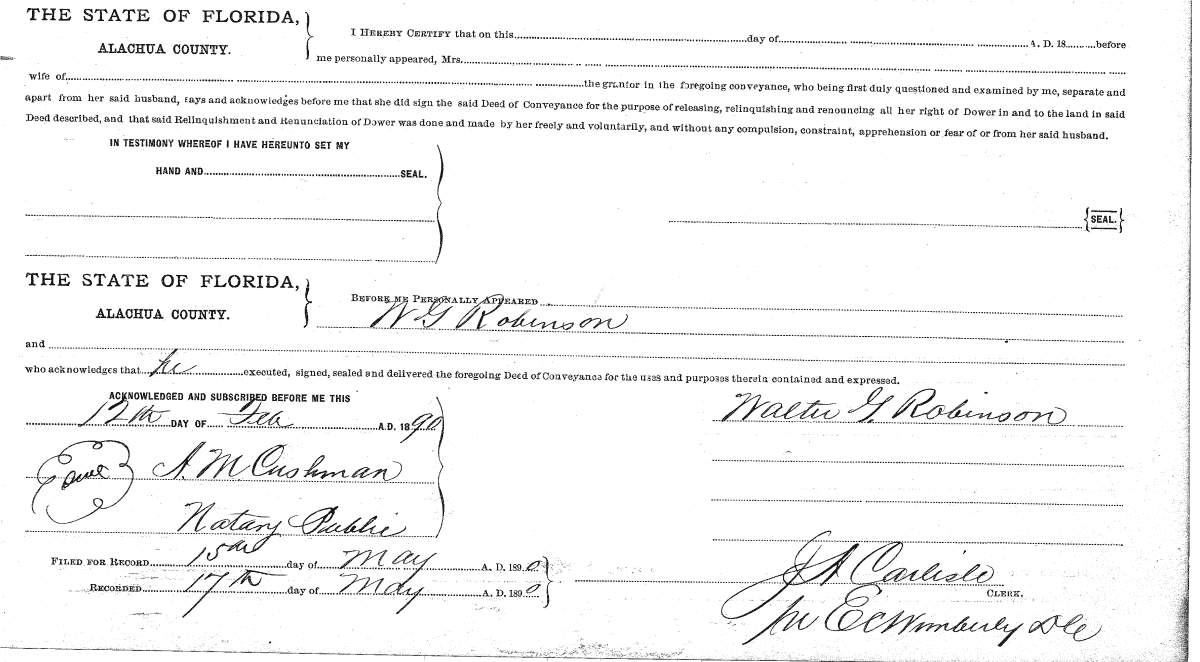 THE STATE OF FLORIDA,
ALACHUA COUNTY.
I HEREBY CERTIFY that on this day of A. D. 18 before
me personally appeared, Mrs.
wife of the grantor in the foregoing conveyance, who being first duly questioned and examined by me, separate and
apart from her said husband, says and acknowledges before me that she did sign the said Deed of Conveyance for the purpose of releasing, relinquishing and renouncing all her right of Dower in and to the land in said
Deed described, and that said Relinquishment and Renunciation of Dower was done and made by her freely and voluntarily, and without any compulsion, constraint, apprehension or fear of or from her said husband.
IN TESTIMONY WHEREOF I HAVE HEREUNTO SET MY
HAND AND SEAL.
SEAL.
THE STATE OF FLORIDA,
ALACHUA COUNTY.
BEFORE ME PERSONALLY APPEARED
W G Robinson
and
who acknowledges that he executed, signed, sealed and delivered the foregoing Deed of Conveyance for the uses and purposes therein contained and expressed.
ACKNOWLEDGED AND SUBSCRIBED BEFORE ME THIS
12th DAY OF Feb A.D. 1890
Walter G. Robinson
A. M. Cushman
Notary Public
FILED FOR RECORD 15th day of May A. D. 1890
RECORDED 17th day of May A. D. 1890
J A Carlisle
CLERK.
E C Wimberly D C